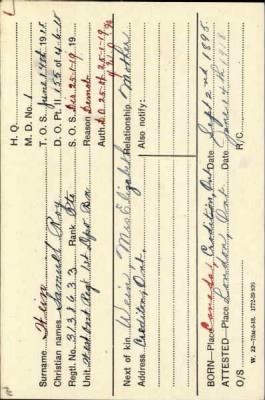 H. Q.
M. D. No. 1
T. O. S. June 14th 1918
Surname
Christian names Samuel Roy
D. O. Pt. II 155 of 4-6-18
Regtl. No. 3138633 Rank Pte
S. O. S. Dis 25-1-19 19
Unit West Ont Regt 1st Depot Bn
Reason Demob
Auth. D.O. 25 of 25-1-19
Next of kin Mrs Elizabeth Relationship Mother
Address Crediton, Ont.
Also notify:
BORN—Place Canada, Crediton, Ont Date Sept 2nd 1895
ATTESTED—Place London, Ont Date June 14th 1918
O/S
R/C